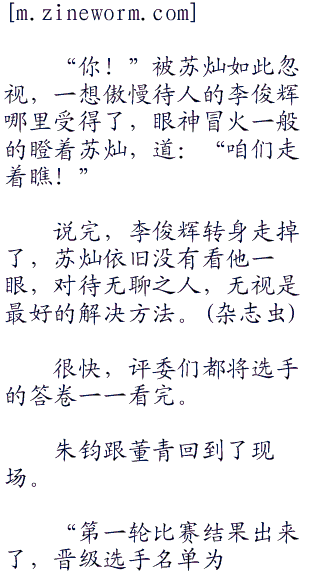 [m.zineworm.com]
“你！”被苏灿如此忽
视，一想傲慢待人的李俊辉
哪里受得了，眼神冒火一般
的瞪着苏灿，道：“咱们走
着瞧！”
说完，李俊辉转身走掉
了，苏灿依旧没有看他一
眼，对待无聊之人，无视是
最好的解决方法。(杂志虫)
很快，评委们都将选手
的答卷一一看完。
朱钧跟董青回到了现
场。
“第一轮比赛结果出来
了，晋级选手名单为